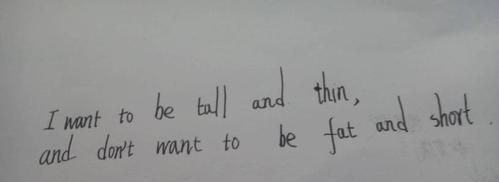 I want to be tall and thin,
and don't want to be fat and short.